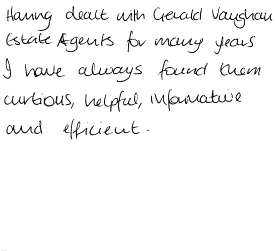 Having dealt with Gerald Vaughan
Estate Agents for many years
I have always found them
curtious, helpful, informative
and efficient.